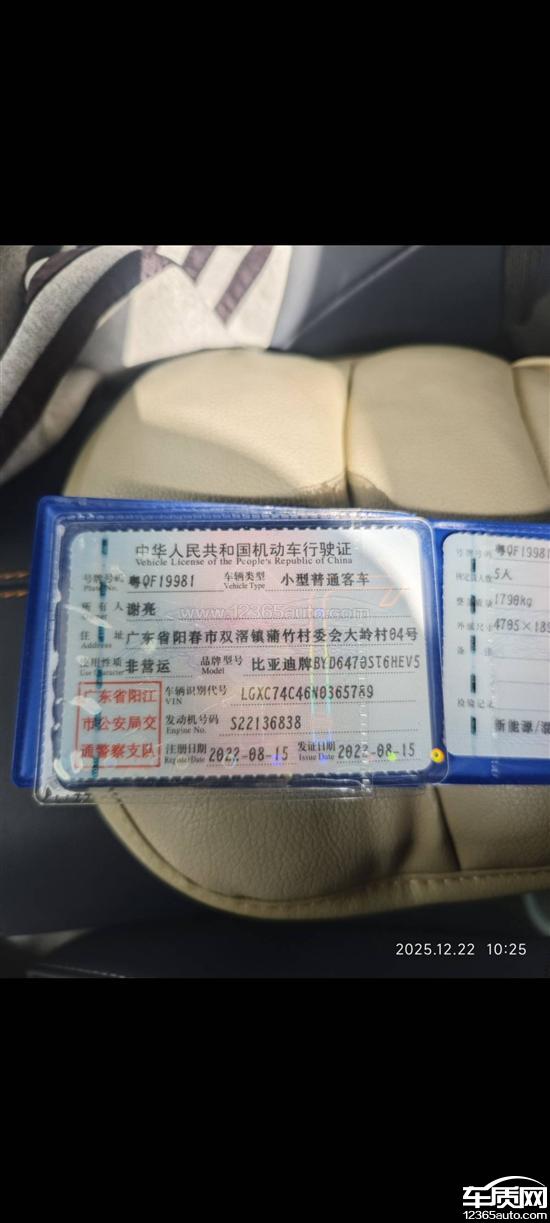 中华人民共和国机动车行驶证
Vehicle License of the People's Republic of China
号牌号码 粤QF19981 车辆类型 小型普通客车
Plate No. Vehicle Type
所有人 谢亮
www.12365auto.com
住址 广东省阳春市双滘镇蒲竹村委会大岭村04号
Address
使用性质 非营运 品牌型号 比亚迪牌BYD6470ST6HEV5
Use Character Model
广东省阳江
市公安局交
通警察支队
车辆识别代号 LGXC74C46N0365789
VIN
发动机号码 S22136838
Engine No.
注册日期 2022-08-15 发证日期 2022-08-15
Register Date Issue Date
号牌号码 粤QF19981
5人
1790kg
外廓尺寸 4705×189
备注
检验记录
新能源/混
2025.12.22 10:25
车质网
12365auto.com